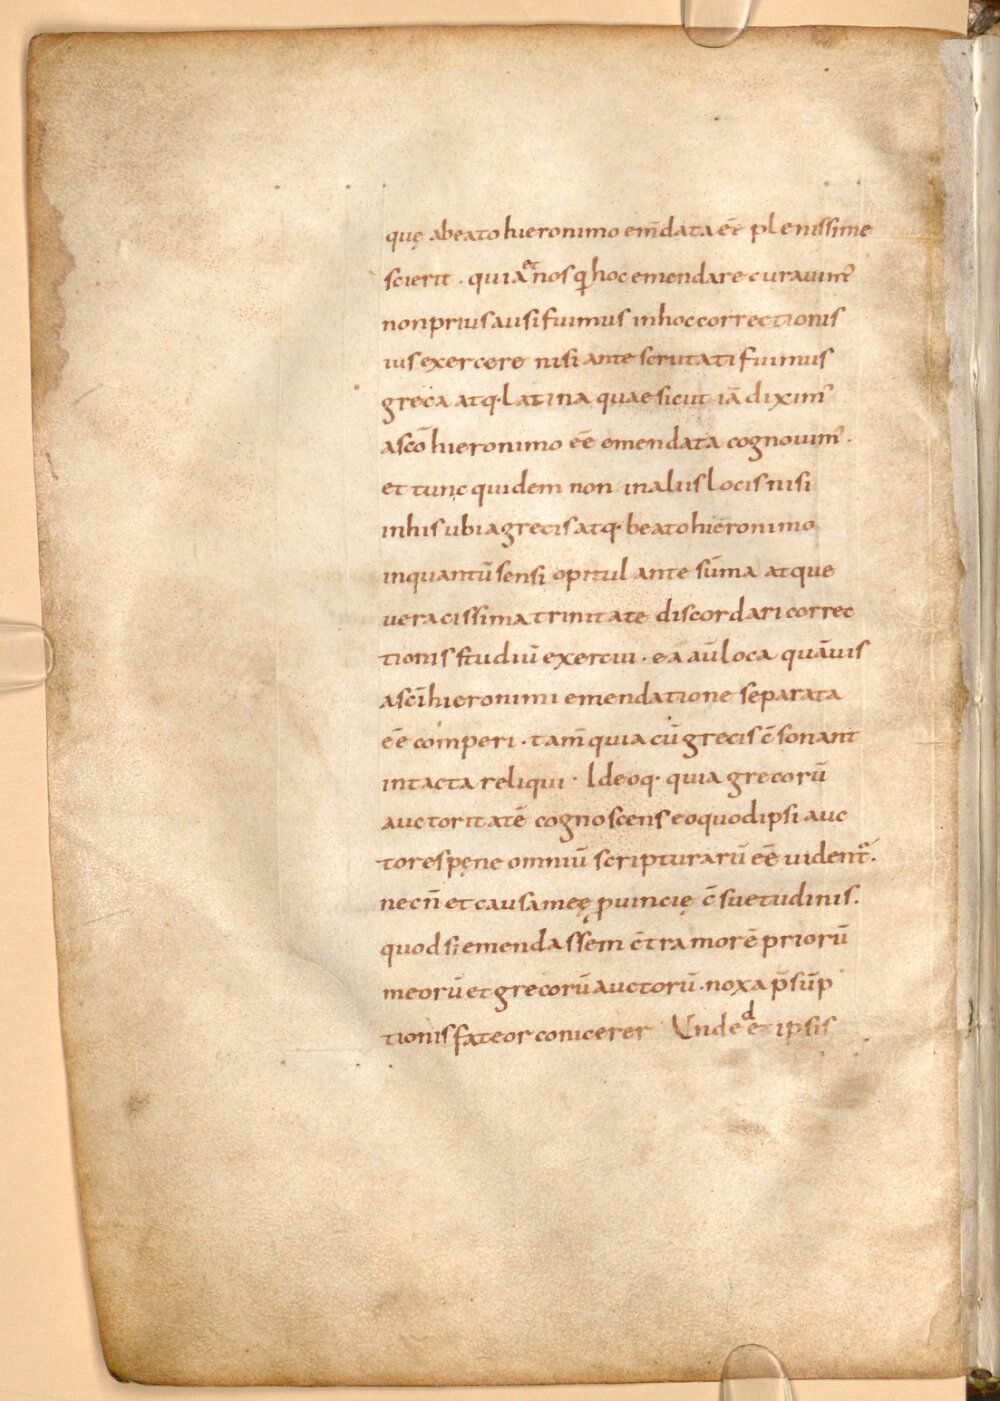 quę abeato hieronimo em̄data eē plenissime
scierit . quia et nos q hoc emendare curauim᾽
non prius ausi fuimus in hoc correctionis
ius exercere nisi ante scrutati fuimus
greca atq· latina quae sicut iā diximˀ
a sc̄o hieronimo eē emendata cognouimˀ.
et tunc quidem non in aliis locis nisi
in his ubi a grecis atq· beato hieronimo
in quantū sensi opitulante sūma atque
ueracissima trinitate discordari correc
tionis studiū exercui . ea aū loca quāuis
a sc̄i hieronimi emendatione separata
eē comperi . tam̄ quia cū grecis c̄sonant
intacta reliqui . Ideoq· quia grecorū
auctoritatē cognoscens eo quod ipsi auc
tores pęne omniū scripturarū eē uident᷑.
nec n̄ et causa meę ꝓuincię c̄suetudinis.
quod si emendassem c̄tra morē priorū
meorū et grecorū auctorū . noxa p̄sūp
tionis fateor conicerer Unde de ipsis